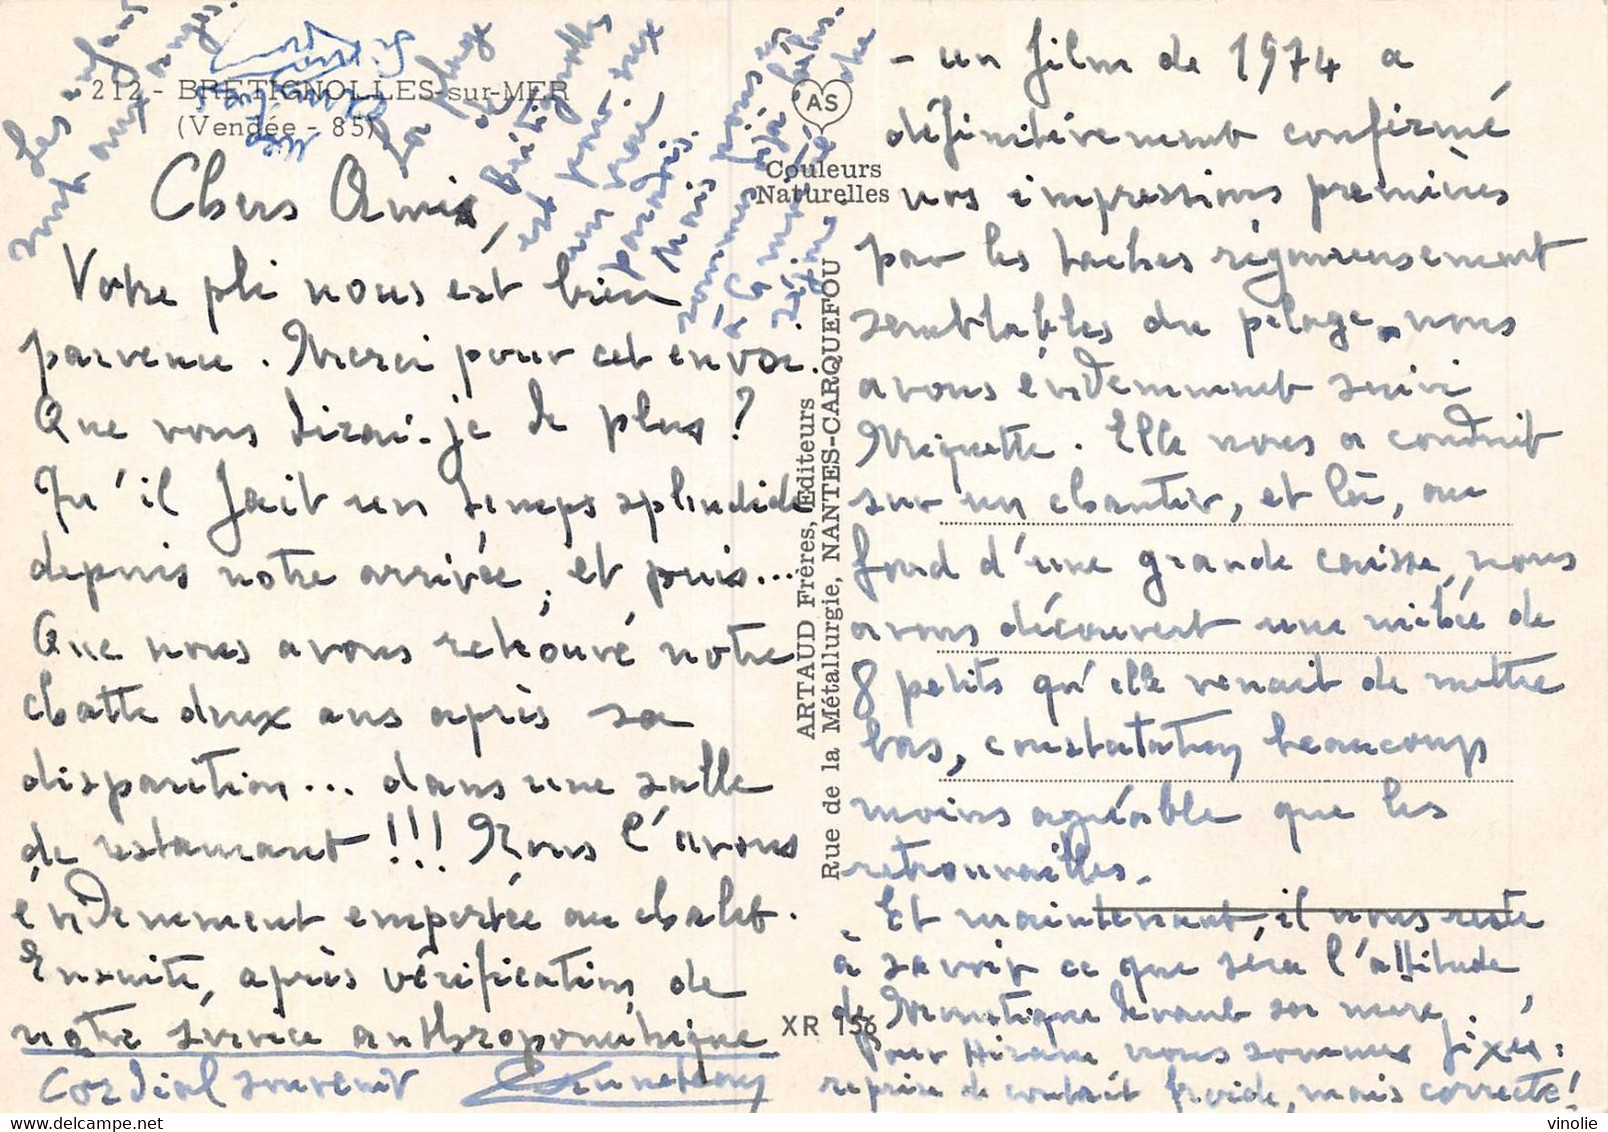 212 - BRETIGNOLLES-sur-MER
(Vendée - 85)
Chers Amis,
Votre pli nous est bien
parvenu. Merci pour cet envoi.
Que vous dirai-je de plus ?
Qu'il fait un temps splendide
depuis notre arrivée, et puis...
Que nous avons retrouvé notre
chatte deux ans après sa
disparition... dans une salle
de restaurant !!! Nous l'avons
évidemment emportée au chalet.
Ensuite, après vérification de
notre service anthropométrique
Cordial souvenir
- un film de 1974 a
définitivement confirmé
nos impressions premières
par les taches rigoureusement
semblables du pelage, nous
avons évidemment suivi
Miquette. Elle nous a conduit
sur un chantier, et là, au
fond d'une grande caisse, nous
avons découvert une nichée de
8 petits qu'elle venait de mettre
bas, constatation beaucoup
moins agréable que les
retrouvailles.
Et maintenant, il nous reste
à savoir ce que séra l'attitude
de Moustique devant sa mère.
Pour Hiram nous sommes fixés :
reprise de contact froide, mais correcte !
Les enfants
sont aux anges.
La plage
de Brétignolles
est pour eux
un vrai
paradis.
Mais nous en
sommes déjà, hélas.
à la moitié de
séjour.
AS
Couleurs
Naturelles
ARTAUD Frères, Editeurs
Rue de la Métallurgie, NANTES-CARQUEFOU
XR 156
vinolie